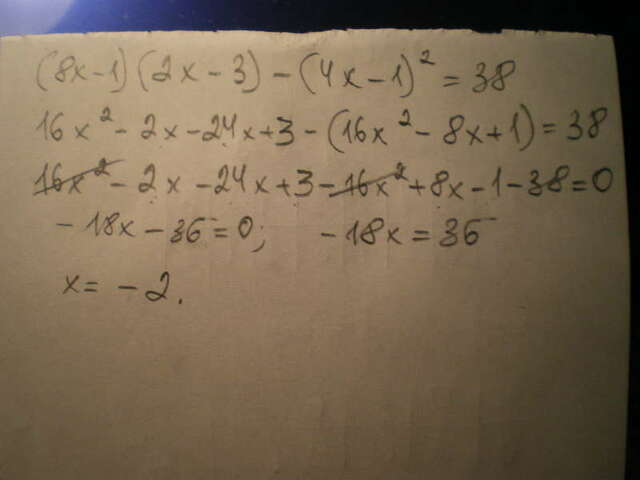 (8x-1)(2x-3)-(4x-1)²=38
16x²-2x-24x+3-(16x²-8x+1)=38
16x²-2x-24x+3-16x²+8x-1-38=0
-18x-36=0; -18x=36
x=-2.